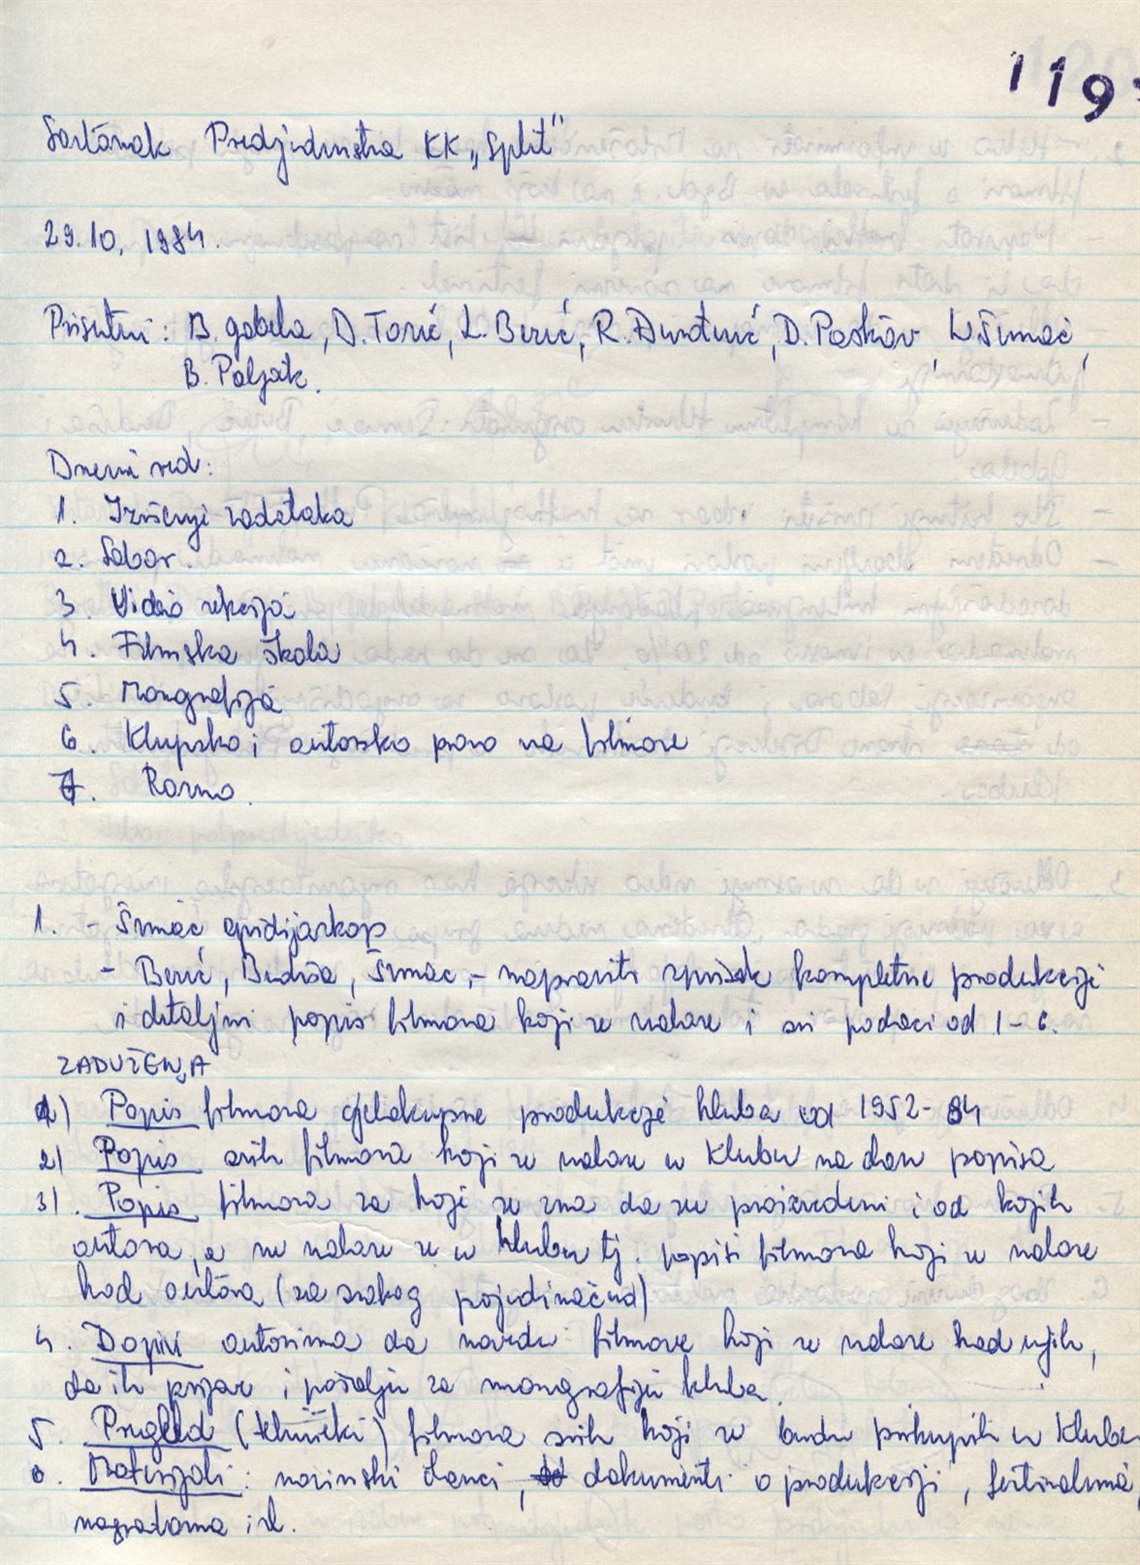 119
Sastanak Predsjedništva KK „Split"
29.10.1984.
Prisutni: B. Gabela, D. Torić, L. Berić, R. Đundunić, D. Poskàv, W Šimac,
B. Poljak.
Dnevni red:
1. Izvršenje zadataka
2. Sabor.
3. Video sekcija
4. Filmska škola
5. Monografija
6. Klupsko i autorsko pravo na filmove
7. Razno.
1. - Šimac epidijaskop
- Berić, Budiša, Šimac, - napraviti spisak kompletne produkcije
i detaljni popis filmova koji se nalaze i svi podaci od 1-6.
ZADUŽENJA
1) Popis filmova cjelokupne produkcije kluba od 1952-84
2) Popis svih filmova koji se nalaze u Klubu na dan popisa
3). Popis filmova za koje se zna da su proizvedeni i od kojih
autora, a ne nalaze se u klubu tj. popisi filmova koji se nalaze
kod autora (za svakog pojedinačno)
4. Dopis autorima da navedu filmove koji se nalaze kod njih,
da ih prijave i pošalju za monografiju kluba.
5. Pregled (tehnički) filmova svih koji se budu prikupili u Klubu
6. Materijali: novinski članci, dokumenti o produkciji, festivalima,
nagradama i sl.